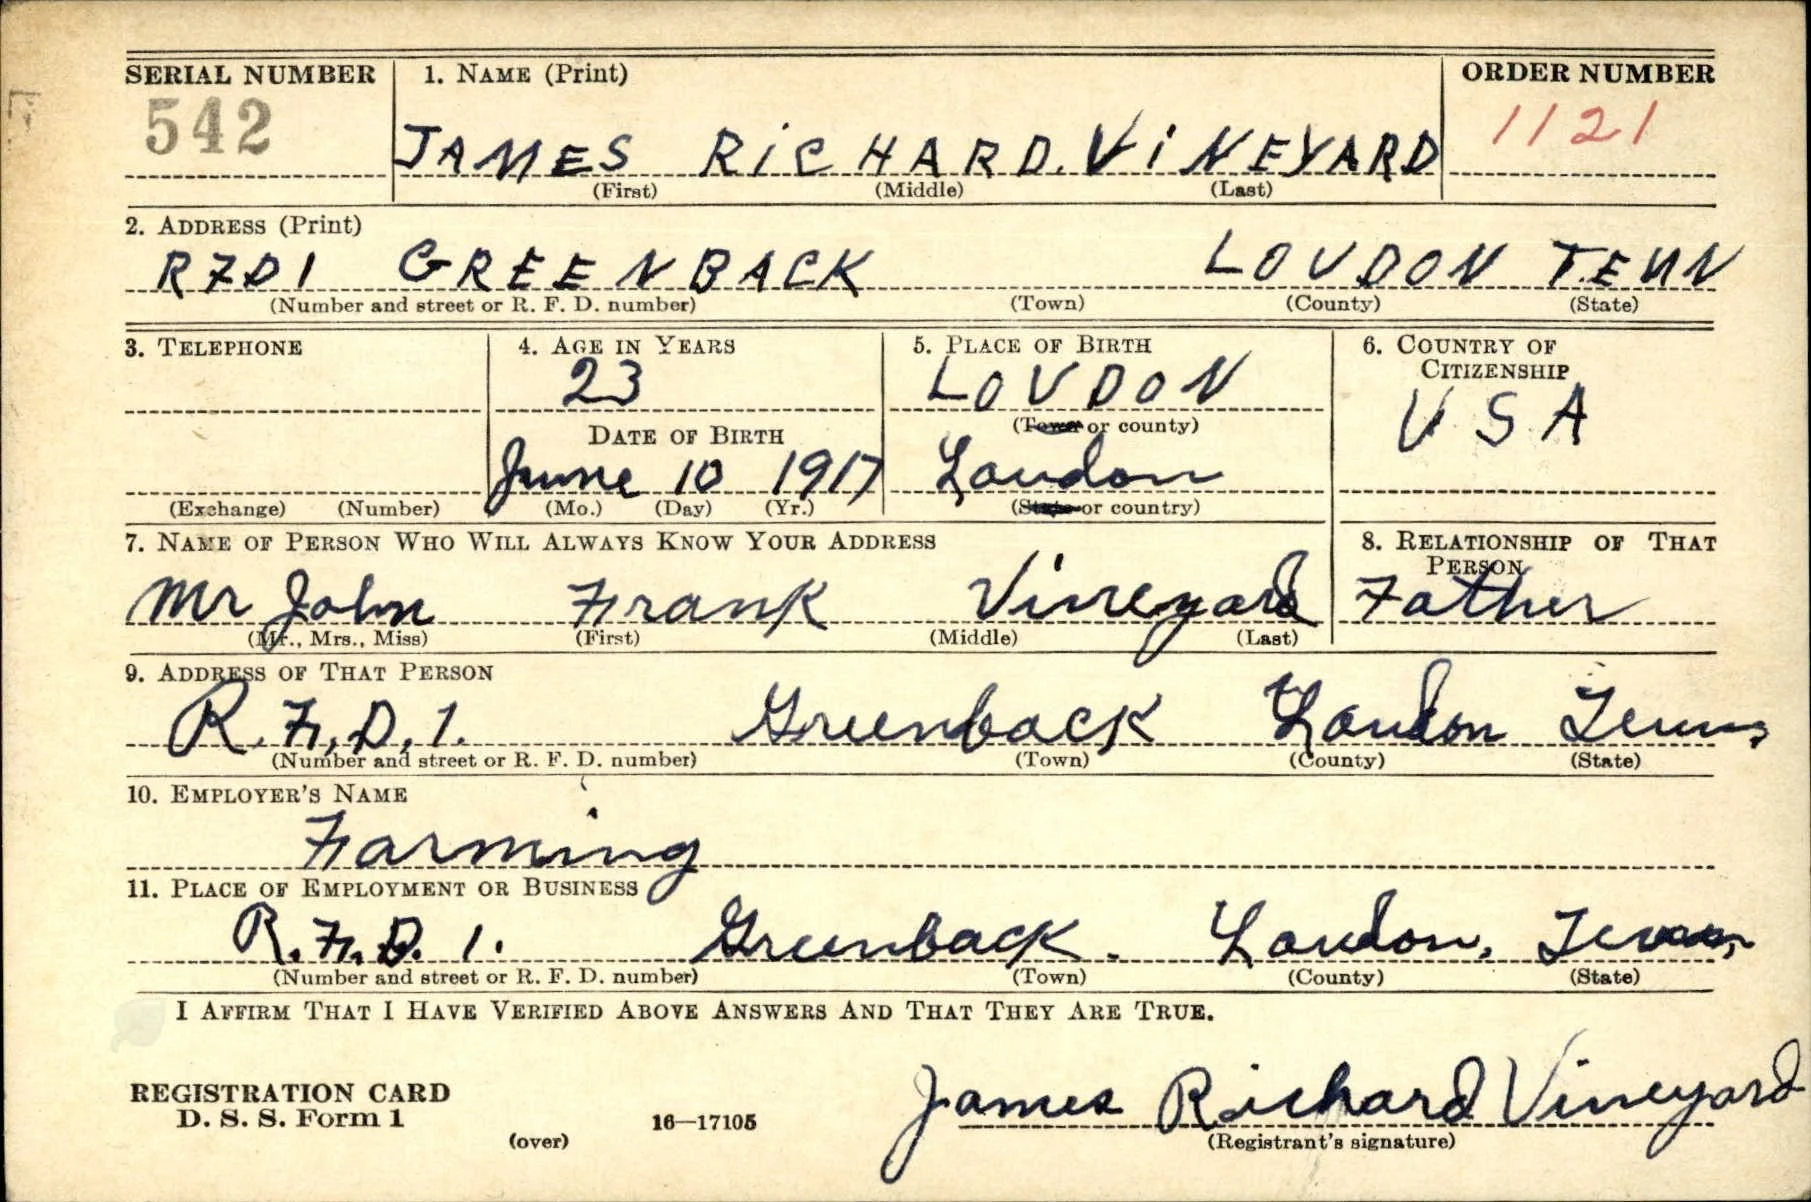 SERIAL NUMBER 1. NAME (Print) ORDER NUMBER
542 JAMES RiCHARD. ViNEYARD 1121
(First) (Middle) (Last)
2. ADDRESS (Print)
RFD1 GREENBACK LOUDON TENN
(Number and street or R. F. D. number) (Town) (County) (State)
3. TELEPHONE 4. AGE IN YEARS 5. PLACE OF BIRTH 6. COUNTRY OF CITIZENSHIP
23 LOUDON USA
(Town or county)
DATE OF BIRTH
June 10 1917 Loudon
(Exchange) (Number) (Mo.) (Day) (Yr.) (State or country)
7. NAME OF PERSON WHO WILL ALWAYS KNOW YOUR ADDRESS 8. RELATIONSHIP OF THAT PERSON
Mr John Frank Vineyard Father
(Mr., Mrs., Miss) (First) (Middle) (Last)
9. ADDRESS OF THAT PERSON
R. F. D. 1. Greenback Loudon Tenn,
(Number and street or R. F. D. number) (Town) (County) (State)
10. EMPLOYER'S NAME
Farming
11. PLACE OF EMPLOYMENT OR BUSINESS
R. F. D. 1. Greenback. Loudon, Tenn,
(Number and street or R. F. D. number) (Town) (County) (State)
I AFFIRM THAT I HAVE VERIFIED ABOVE ANSWERS AND THAT THEY ARE TRUE.
REGISTRATION CARD
D. S. S. Form 1 16—17105 James Richard Vineyard
(over) (Registrant's signature)